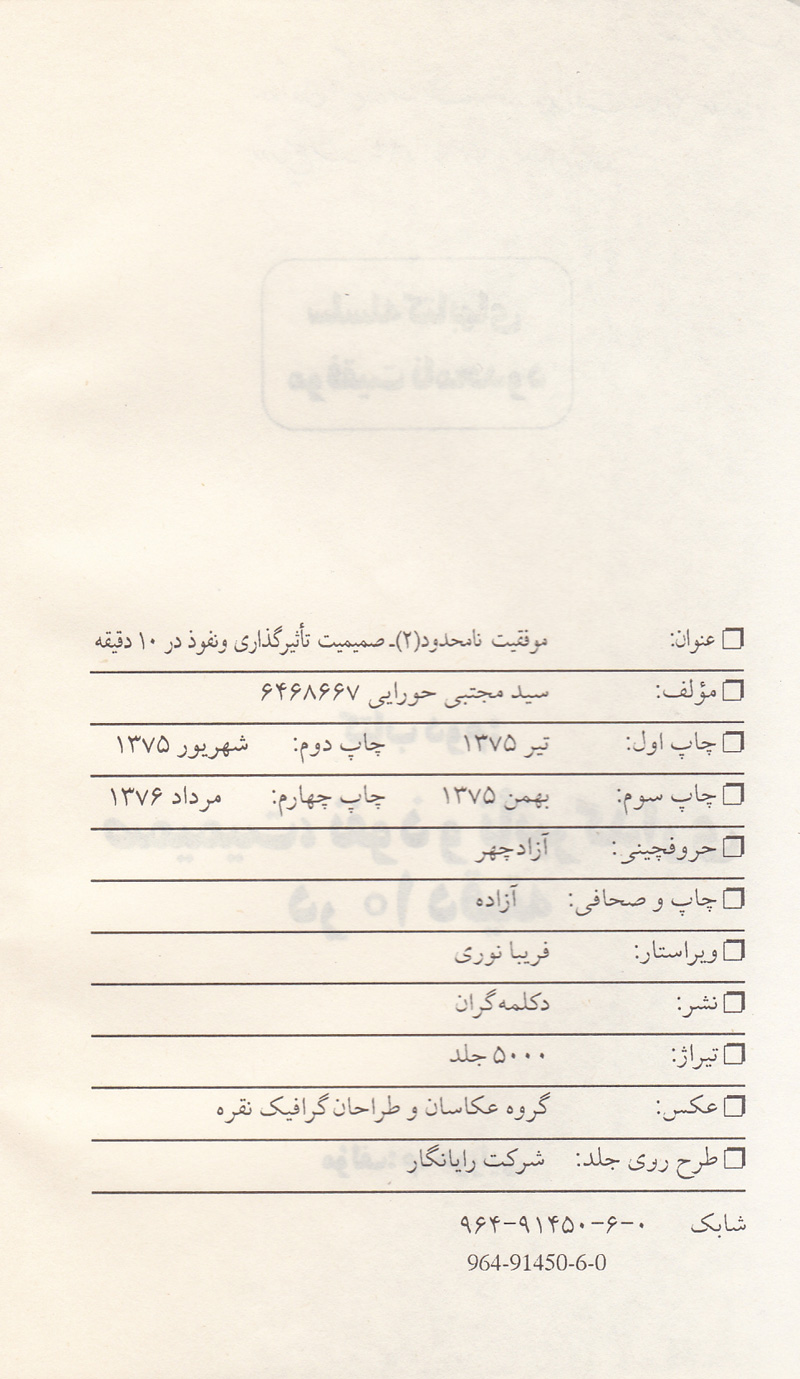 عنوان: موفقیت نامحدود(۲)ـ صمیمیت تأثیرگذاری ونفوذ در ۱۰ دقیقه
مؤلف: سید مجتبی حورایی ۶۴۶۸۶۶۷
چاپ اول: تیر ۱۳۷۵ چاپ دوم: شهریور ۱۳۷۵
چاپ سوم: بهمن ۱۳۷۵ چاپ چهارم: مرداد ۱۳۷۶
حروفچینی: آزادچهر
چاپ و صحافی: آزاده
ویراستار: فریبا نوری
نشر: دکلمه‌گران
تیراژ: ۵۰۰۰ جلد
عکس: گروه عکاسان و طراحان گرافیک نقره
طرح روی جلد: شرکت رایانگار
شابک ۰-۶-۹۱۴۵۰-۹۶۴
964-91450-6-0